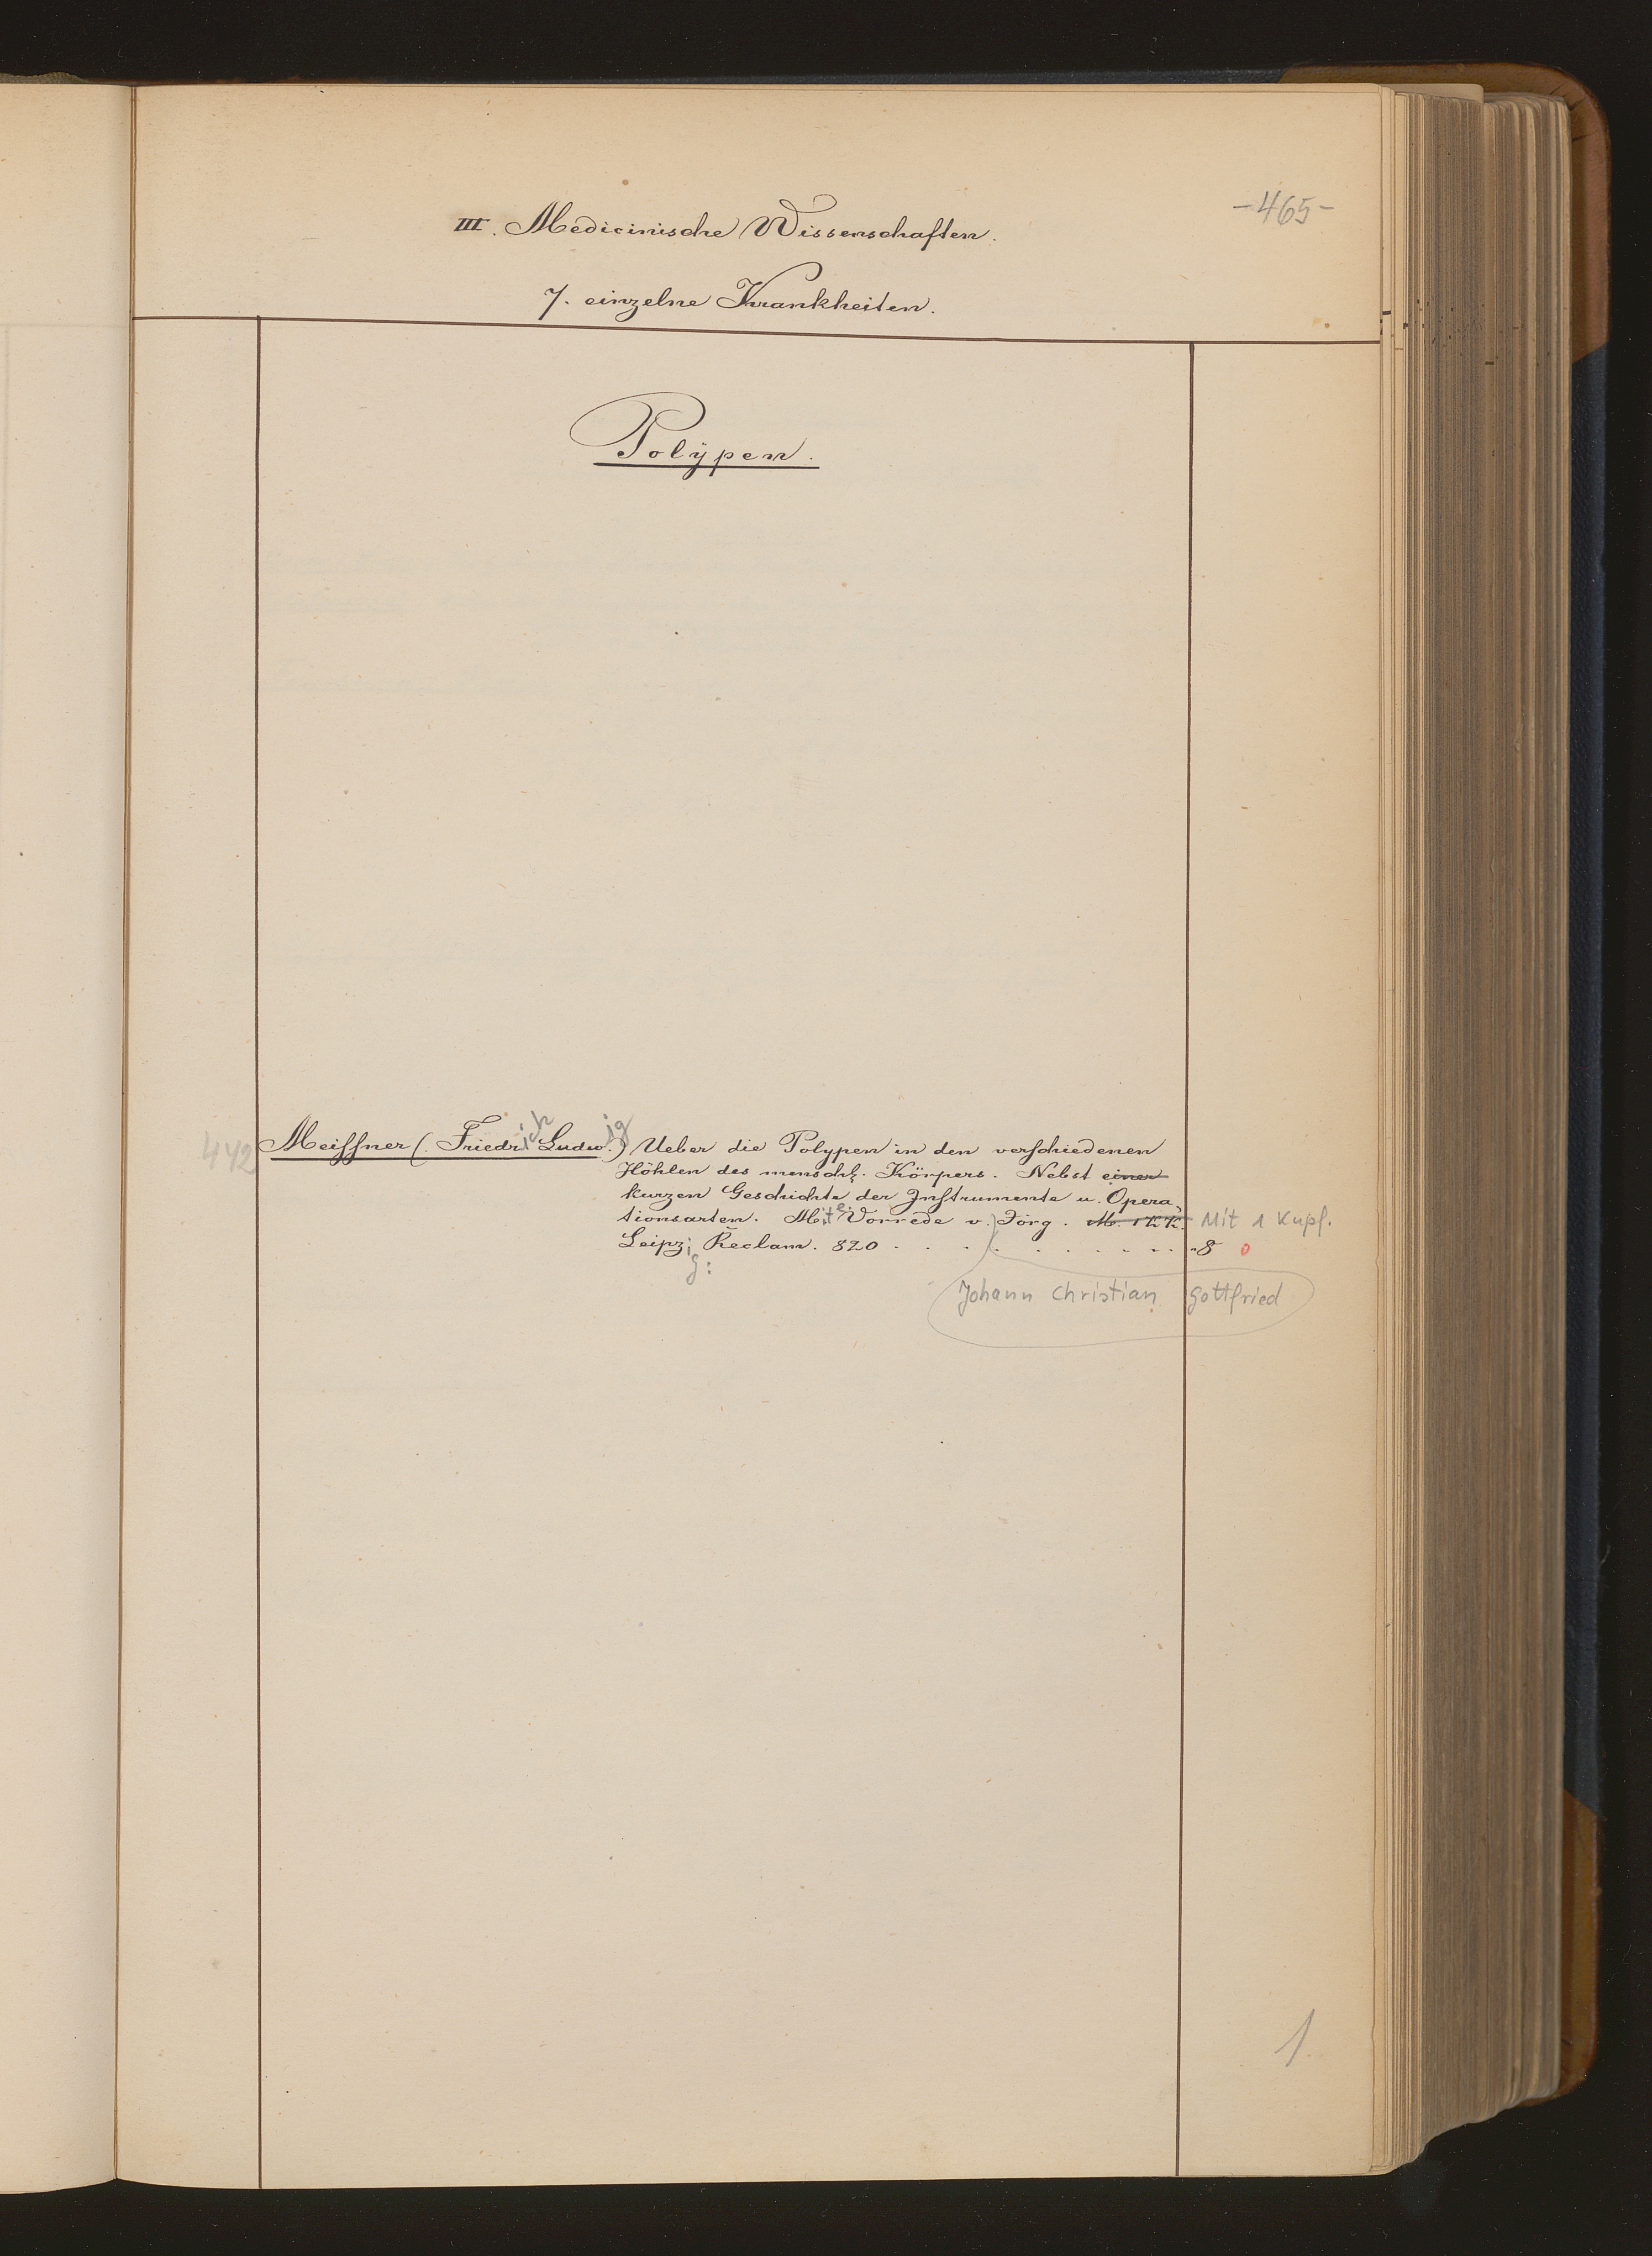 -465-
III. Medicinische Wissenschaften.
7. einzelne Krankheiten.
Polÿpen.
442 Meissner (Friedrich Ludwig.) Ueber die Polypen in den verschiedenen
Höhlen des menschl. Körpers. Nebst einer
kurzen Geschichte der Instrumente u. Opera-
tionsarten. Mit e. Vorrede v. Jörg. M. 1 KK. Mit 1 Kupf.
Leipzig: Reclam. 820 . . . . . . . . . . 8 0
Johann Christian Gottfried
1